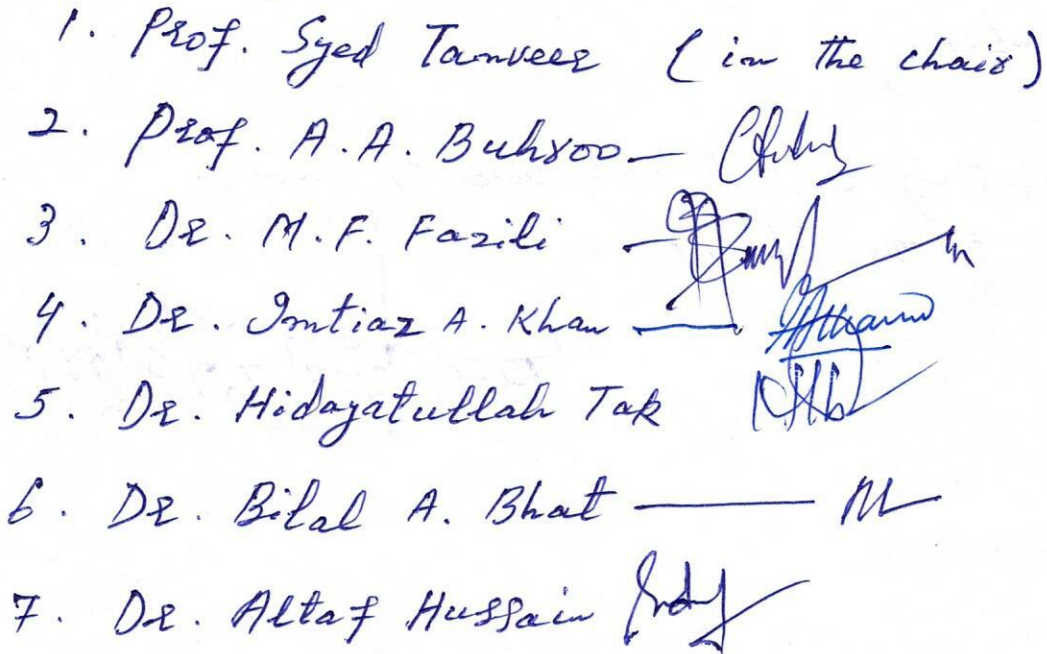 1. Prof. Syed Tanveer (in the chair)
2. Prof. A.A. Buhroo —
3. Dr. M.F. Fazili —
4. Dr. Imtiaz A. Khan —
5. Dr. Hidayatullah Tak
6. Dr. Bilal A. Bhat —
7. Dr. Altaf Hussain